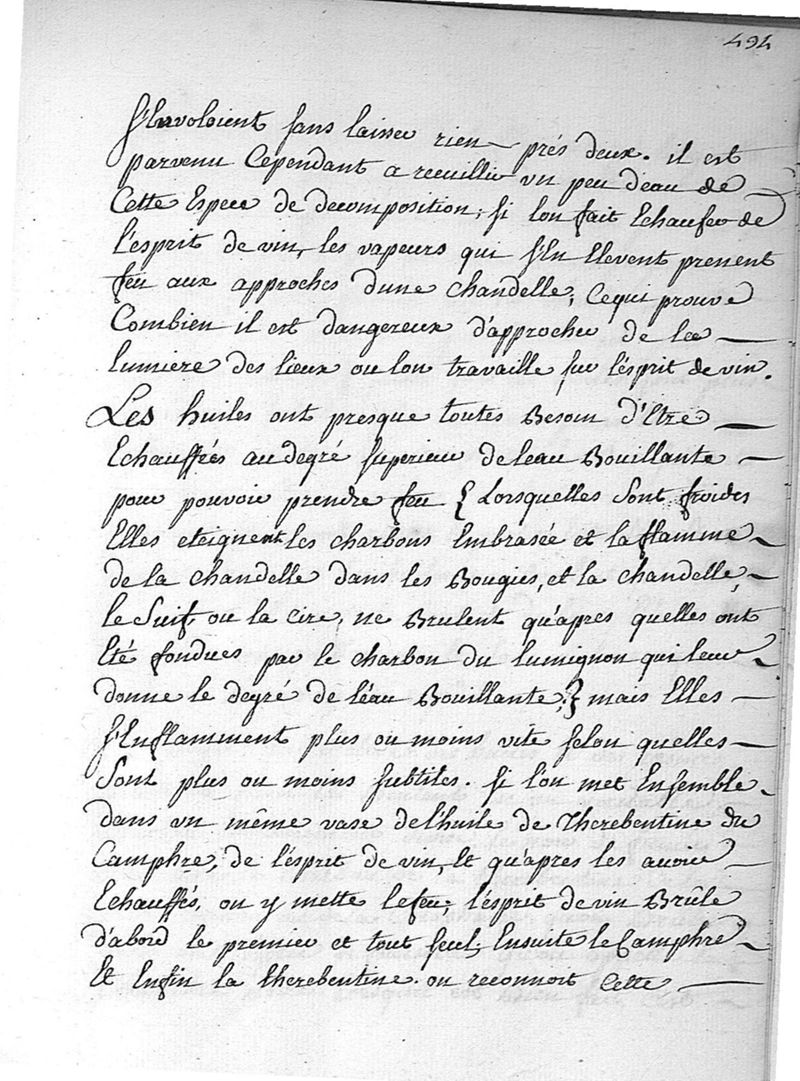 494
s'Envoloient sans laisser rien prés deux. il est
parvenu Cependant a recuillir un peu deau de
Cette Espece de decomposition; si lon fait Echaufer de
l'esprit de vin, les vapeurs qui s'En Elevent prenent
feu aux approches dune chandelle, Cequi prouve
Combien il est dangereux d'approcher de la
lumiere des lieux ou lon travaille sur l'esprit de vin.
Les huiles ont presque toutes Besoin d'Etre
Echauffés audegré superieur deleau Bouillante
pour pouvoir prendre feu { Lorsquelles sont froides
Elles eteignent les charbons Embrasée et la flamme
de la chandelle dans les Bougies, et la chandelle,
le Suif ou la Cire, ne Brulent qu'apres quelles ont
Eté fondues par le charbon du lumignon qui leur
donne le degré de l'éau Bouillante; } mais Elles
s'Enflamment plus ou moins vite selon quelles
sont plus ou moins subtiles. si l'on met Ensemble
dans un même vase de l'huile de Therebentine du
Camphre, de l'ésprit de vin, Et qu'apres les avoir
Echauffés, on y mette le feu; l'ésprit de vin Brûle
d'abord le premier et tout seul; Ensuite le Camphre
Et Enfin la therebentine. on reconnoit Cette